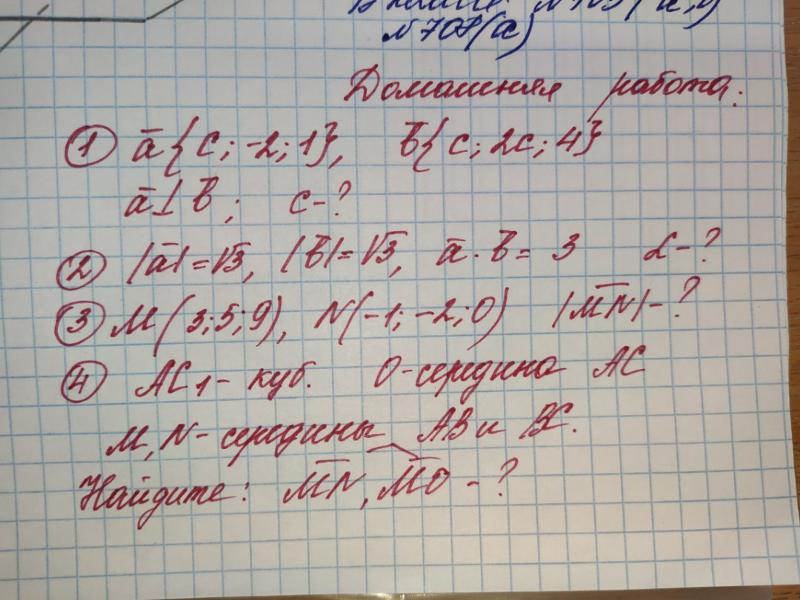 №707(а)
Домашняя работа.
① ā{c; -2; 1}, b̄{c; 2c; 4}
ā⊥b̄; c-?
② |ā|=√3, |b̄|=√3, ā·b̄= 3 α-?
③ M(3;5;9), N(-1; -2; 0) |M̅N̅|-?
④ AC₁- куб. O-середина AC
M,N- середины AB и BC.
Найдите: M̅N̅, M̅O̅ -?